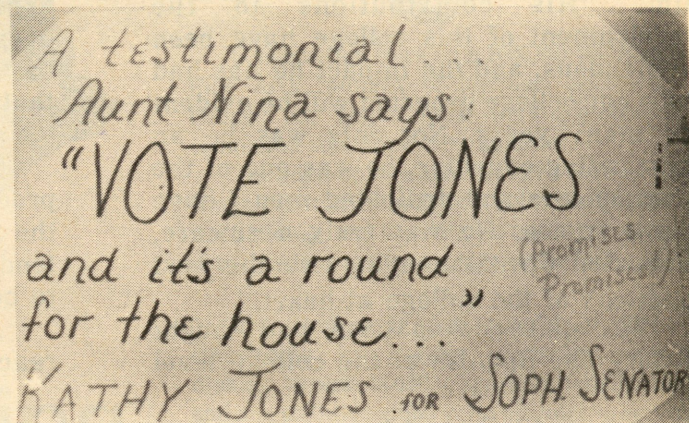 A testimonial...
Aunt Nina says:
"VOTE JONES
and it's a round
for the house..."
(Promises,
Promises!)
KATHY JONES FOR SOPH. SENATOR